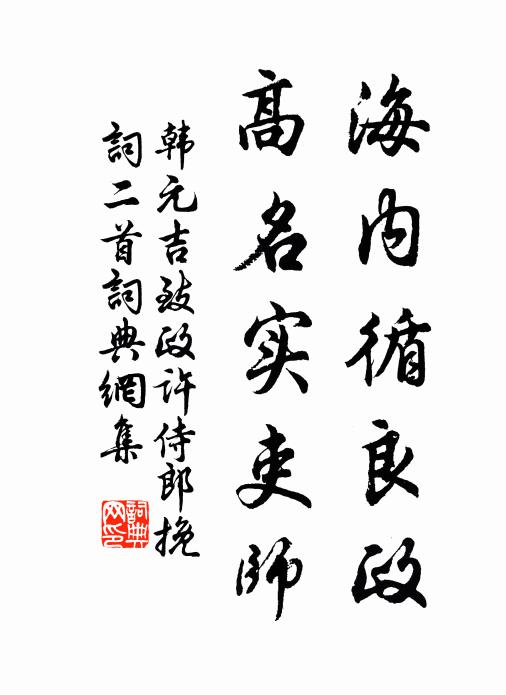 海内循良政
高名实吏师
韩元吉致政许侍郎挽
詞二首詞典網集
詞典
网印